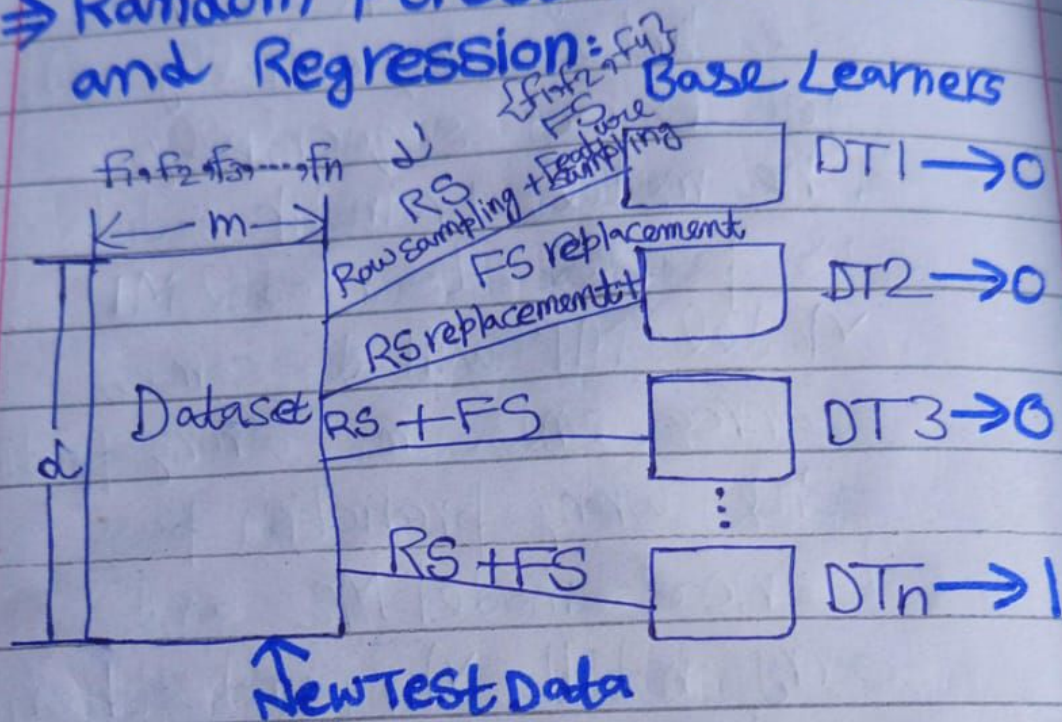 ⇒ Random Forest
and Regression:
{f1,f2,f4}
Base Learners
f1,f2,f3,....,fn d'
FS
RS
Row sampling + Feature sampling
DT1→0
m
FS replacement
RS replacement +
DT2→0
Dataset
RS + FS
DT3→0
d
⋮
RS + FS
DTn→1
New Test Data